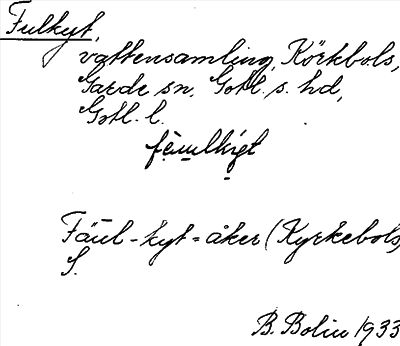 Fulkyt,
vattensamling, Körkbols,
Garde sn, Gotl. s. hd,
Gotl. l.
Fäul-kyt=åker (Kyrkebols)
S.
B. Bolin 1933